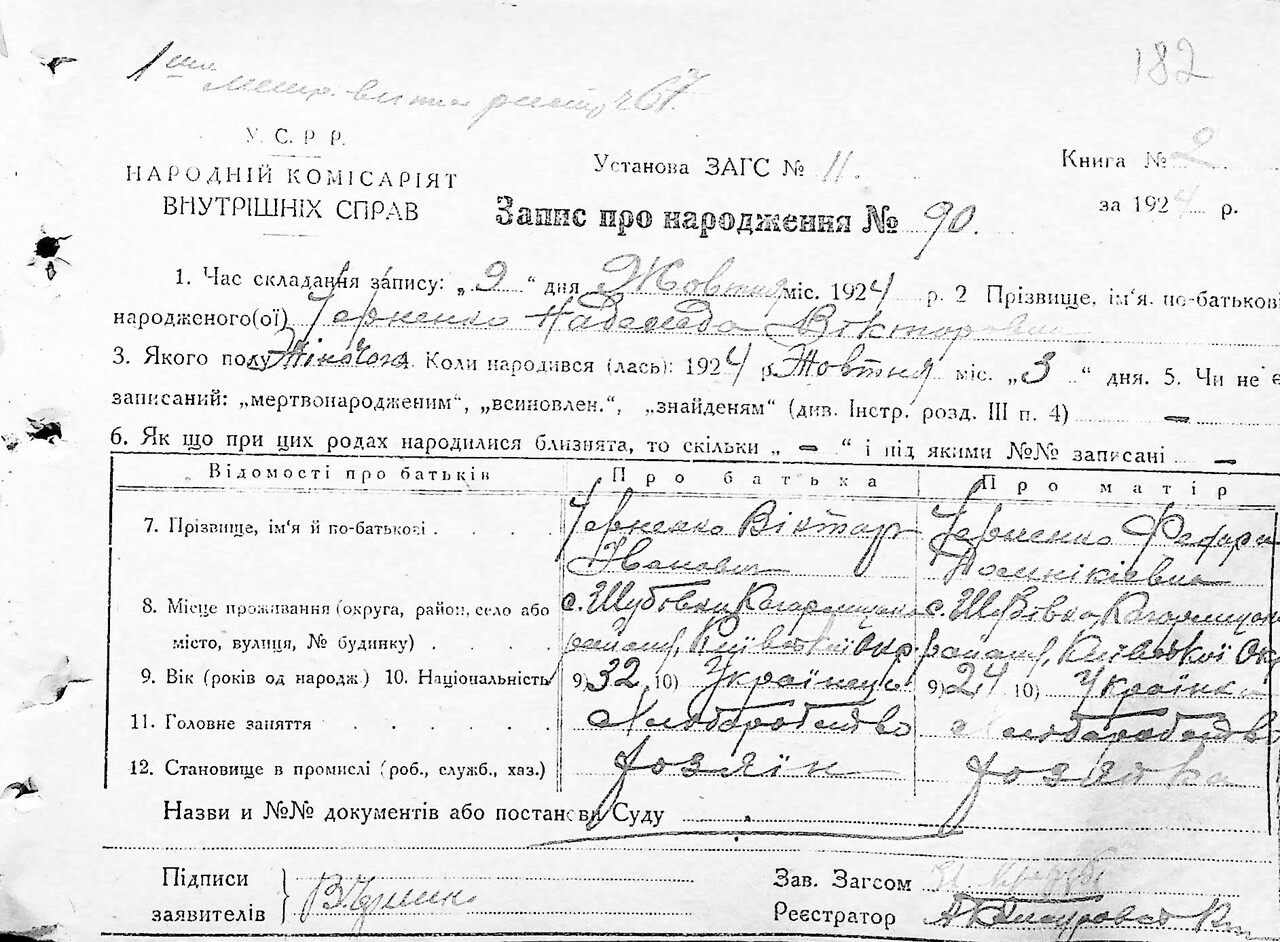 182
У. С. Р Р.
НАРОДНІЙ КОМІСАРІЯТ
ВНУТРІШНІХ СПРАВ
Установа ЗАГС № 11.
Книга № 2
за 1924 р.
Запис про народження № 90.
1. Час складання запису: „ 9 “ дня Жовтня міс. 1924 р. 2 Прізвище, ім'я, по-батькові
народженого(ої) Черненко Надежда Вікторовна
3. Якого полу Жіночого 4. Коли народився (лась): 1924 р. Жовтня міс. „ 3 “ дня. 5. Чи не є
записаний: „мертвонародженим“, „всиновлен.“, „знайденям“ (див. Інстр. розд. III п. 4) —
6. Як що при цих родах народилися близнята, то скільки „ — “ і під якими №№ записані —
Відомості про батьків Про батька Про матір
7. Прізвище, ім'я й по-батькові . . . . Черненко Віктор Черненко
Іванович
8. Місце проживання (округа, район, село або с. Шубовки с. Шубовка
місто, вулиця, № будинку) . . . . району, Київської Окр. району, Київської Окр
9. Вік (років од народж.) 10. Національність 9) 32 10) Українець 9) 24 10) Українка
11. Головне заняття . . . . Хлеборобство Хлеборобство
12. Становище в промислі (роб., служб., хаз.) Хозяїн Хозяйка
Назви и №№ документів або постанови Суду
Підписи
заявителів
Зав. Загсом
Реєстратор